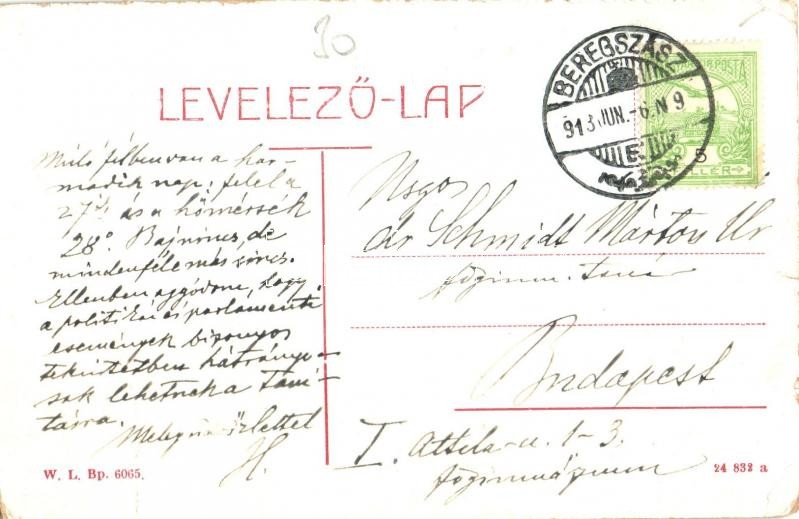 30
LEVELEZŐ-LAP
BEREGSZÁSZ
913 JUN.-6.N 9
E
MAGYAR KIR. POSTA
5
FILLÉR
Múlófélben van a har-
madik nap: felel a
27 és a hőmérsék
28°. Baj nincs, de
mindenféle más sincs.
Ellenben aggódom, hogy
a politikai és parlamenti
események bizonyos
tekintetben hátrányo-
sak lehetnek a taní-
tásra.
Meleg üdvözlettel
H.
Nsgos
dr Schmidt Márton Ur
főgimn. tanár
Budapest
I. Attila-u. 1-3.
főgimnázium
W. L. Bp. 6065.
24 832 a